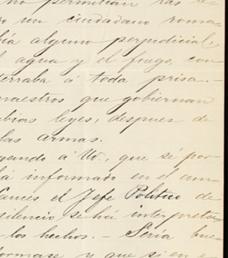 no permitian las le-
o un ciudadano roma-
bia alguno perjudicial,
l agua y el fuego, con
terraba á toda prisa.-
maestros que gobiernan
abias leyes, despues de
las armas.
gando a Ud., que sé por
á informado en el
ances el Jefe Político de
silencio se há interpreta
los hechos.- Seria bue-
y que si en e